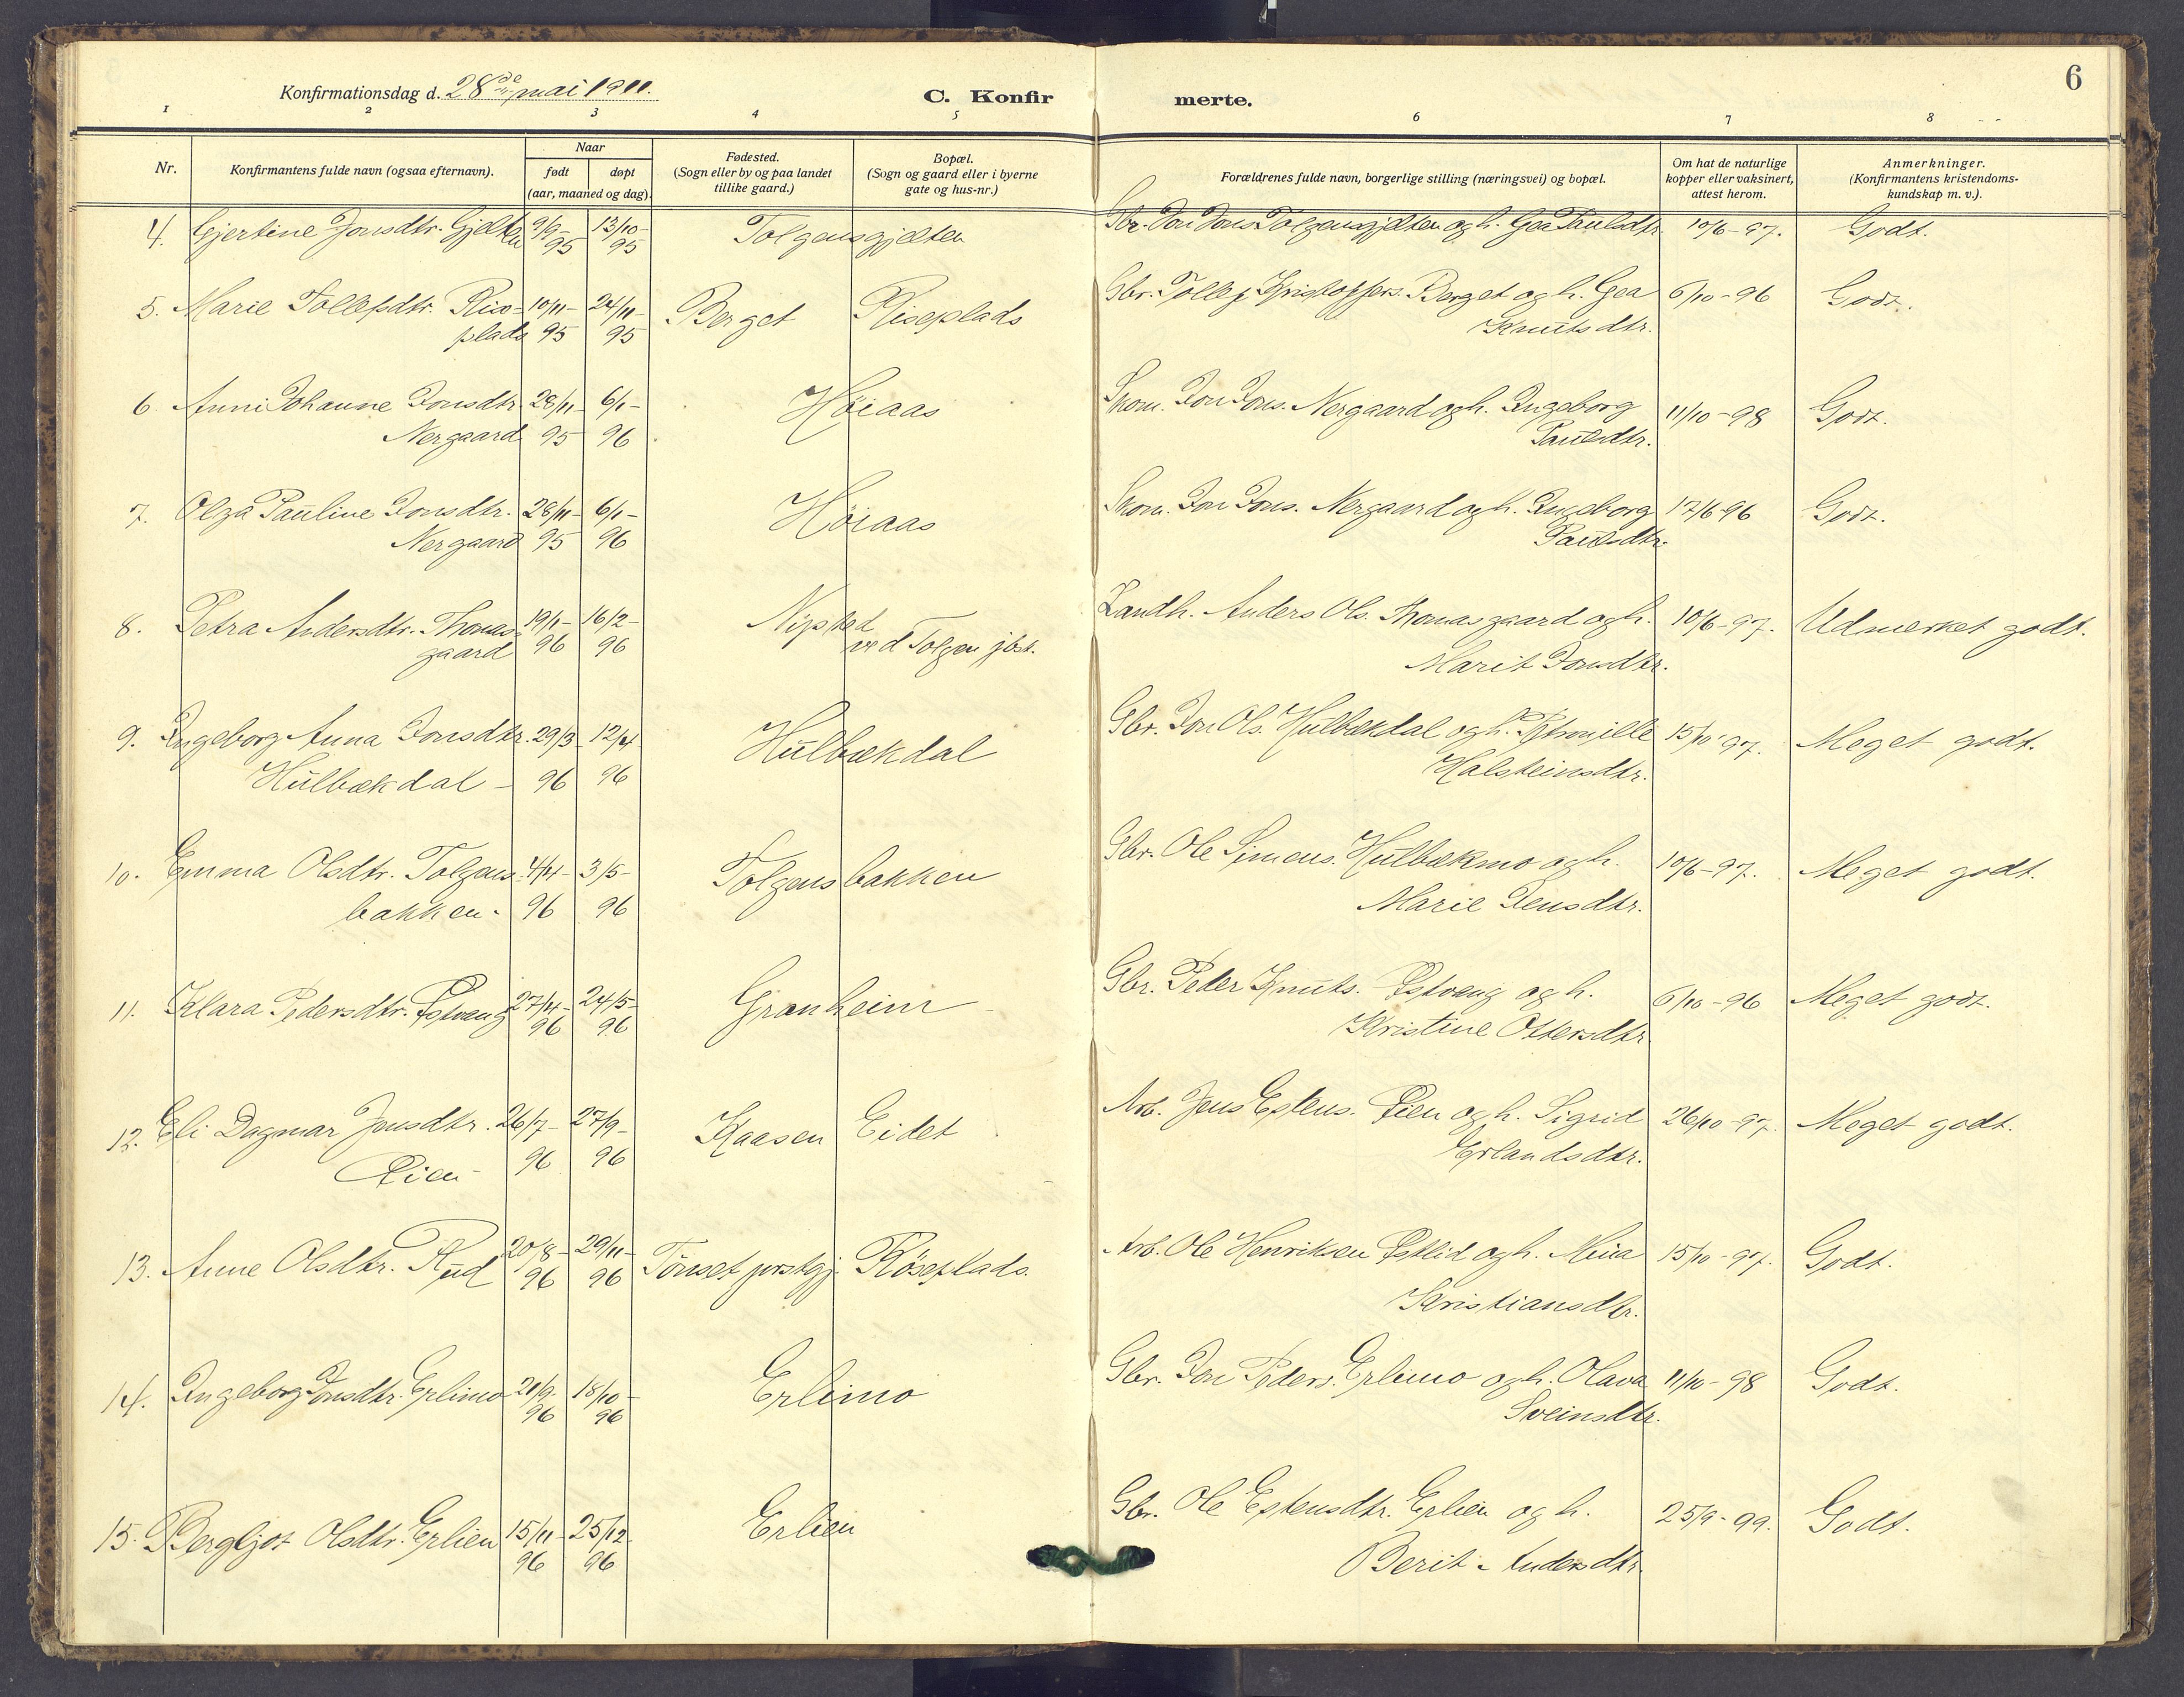 6
Konfirmationsdag d. 28de mai 1911.
C. Konfirmerte.
1 2 3 4 5 6 7 8
Nr.
Konfirmantens fulde navn (ogsaa efternavn).
Naar
født døpt
(aar, maaned og dag).
Fødested.
(Sogn eller by og paa landet
tillike gaard.)
Bopæl.
(Sogn og gaard eller i byerne
gate og hus-nr.)
Forældrenes fulde navn, borgerlige stilling (næringsvei) og bopæl.
Om hat de naturlige
kopper eller vaksinert,
attest herom.
Anmerkninger.
(Konfirmantens kristendoms-
kundskap m. v.).
4. Gjertine Jonsdtr. Gjelten 9/9-95 13/10-95 Tolgensgjelten Gbr. Jon Jons. Tolgensgjelten og h. Gea Paulsdtr. 10/6-97. Godt.
5. Marie Tollefsdtr. Rise- 10/11- 24/11- Berget Riseplads Gbr. Tollef Kristoffers. Berget og h. Gea 6/10-96 Godt.
plads 95 95 Knutsdtr.
6. Anni Johanne Jonsdtr. 28/11- 6/1- Høiaas Skom. Jon Jons. Nergaard og h. Ingeborg 11/10-98 Godt.
Nergaard 95 96 Paulsdtr.
7. Olga Pauline Jonsdtr. 28/11- 6/1- Høiaas Skom. Jon Jons. Nergaard og h. Ingeborg 17/6-96 Godt.
Nergaard 95 96 Paulsdtr.
8. Petra Andersdtr. Thomas- 19/1- 16/2- Nysted Landh. Anders Ols. Thomasgaard og h. 10/6-97. Udmerket godt.
gaard 96 96 ved Tolgen jbst. Marit Jonsdtr.
9. Ingeborg Anna Jonsdtr. 29/3 12/4 Hulbækdal Gbr. Jon Ols. Hulbækdal og h. Petronille 15/10-97. Meget godt.
Hulbækdal - 96 96 Halsteinsdtr.
10. Emma Olsdtr. Tolgens- 4/4- 3/5- Tolgensbakken Gbr. Ole Simens. Hulbækmo og h. 10/6-97. Meget godt.
bakken - 96 96 Marie Jensdtr.
11. Klara Pedersdtr. Østvang 27/4- 24/5- Granheim Gbr. Peder Knuts. Østvang og h. 6/10-96 Meget godt.
96 96 Kristine Ottersdtr.
12. Eli Dagmar Jensdtr. 26/7- 27/9- Kaasen Eidet Arb. Jens Estens. Øien og h. Sigrid 26/10-97. Meget godt.
Øien - 96 96 Erlandsdtr.
13. Anne Olsdtr. Rud 20/8- 29/11- Tønset prstgj. Røseplads. Arb. Ole Henriksen Østlid og h. Mina 15/10-97. Godt.
96 96 Kristiansdtr.
14. Ingeborg Jonsdtr. Erlimo 21/9- 18/10- Erlimo Gbr. Jon Peders. Erlimo og h. Olava 11/10-98 Godt.
96 96 Sveinsdtr.
15. Bergljot Olsdtr. Erlien 15/11- 25/12- Erlien Gbr. Ole Estensdtr. Erlien og h. 25/9-99. Godt.
96 96 Berit Andersdtr.